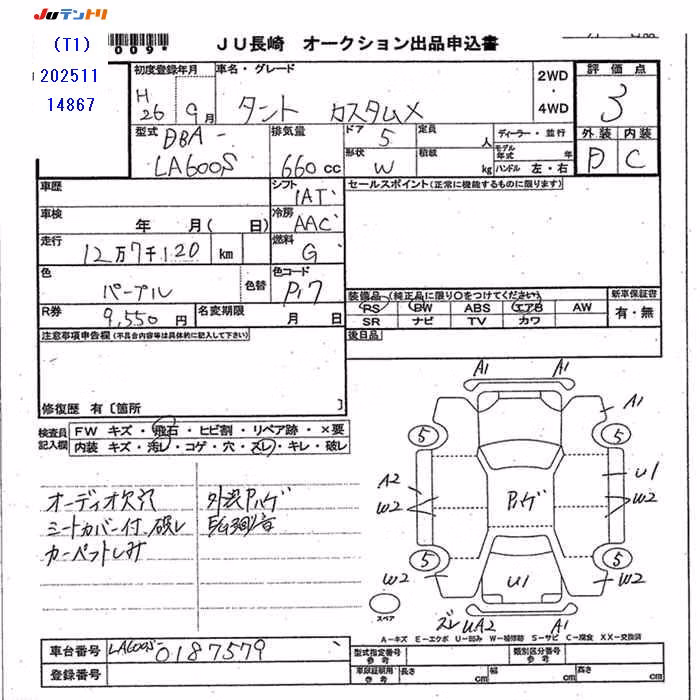 JUテントリ
(T1)
202511
14867
009*
JU長崎 オークション出品申込書
初度登録年月 車名・グレード 2WD・4WD 評価点
H26年 9月 タント カスタムX 3
型式 排気量 ドア 定員 人 ディーラー・並行 外装 内装
DBA-LA600S 660cc 5 モデル年式 年 D C
形状 W 積載 kg ハンドル 左・右
車歴 シフト IAT セールスポイント(正常に機能するものに限ります)
車検 年 月( 日) 冷房 AAC
走行 12万7千120 km 燃料 G
色 パープル 色替 色コード P17
装備品(純正品に限り○をつけてください) 新車保証書
RS PW ABS エアB AW 有・無
SR ナビ TV カワ
R券 9,550円 名変期限 月 日
注意事項申告欄(不具合内容等は具体的に記入して下さい) 後日品
修復歴 有〔箇所 〕
検査員記入欄 FW キズ・飛石・ヒビ割・リペア跡・×要
内装 キズ・汚レ・コゲ・穴・スレ・キレ・破レ
オーディオ欠品 外装ハゲ
シートカバー付 破レ
カーペットしみ
A1 A1
A1
5 5
A2 U1
W2 ハゲ W2
5 5
W2 U1 W2
スペア
ズレ UA2 A1
A-キズ E-エクボ U-凹み W-補修跡 S-サビ C-腐食 XX-交換済
車台番号 LA600S- 0187579
登録番号
型式指定番号 参考 類別区分番号 参考
車庫証明用 参考 長さ cm 幅 cm 高さ cm